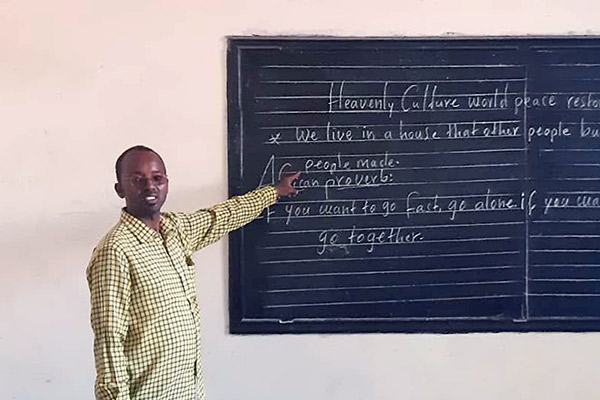 Heavenly Culture world peace resto
* We live in a house that other people bu
people made.
African proverb:
If you want to go fast, go alone if you wa
go together.